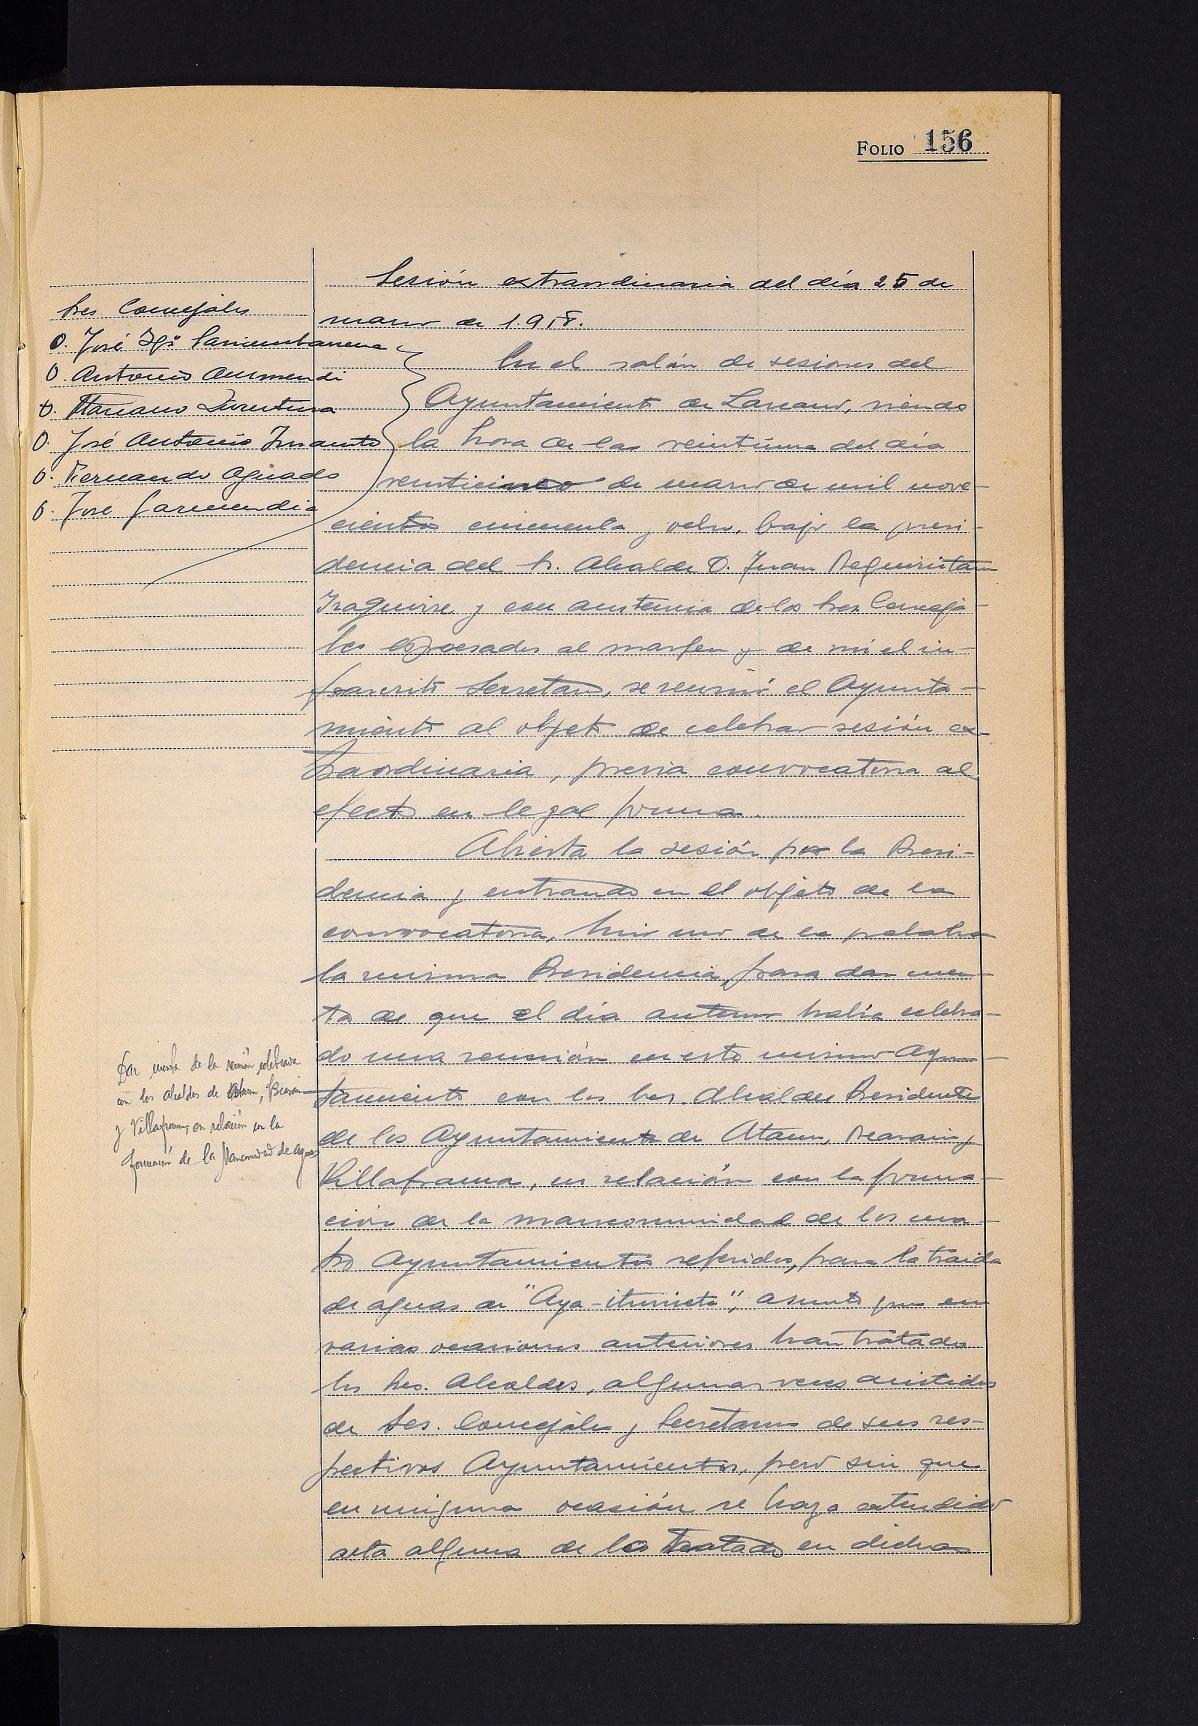 FOLIO 156
Sesión extraordinaria del día 25 de
marzo de 1.958.
Sres Concejales
D. José Igº
D. Antonio Auzmendi
D. Mariano
D. José Antonio
D. Fernando Aguado
D. José Garmendia
En el salón de sesiones del
Ayuntamiento de Lazcano, siendo
la hora de las veintiuna del día
veinticinco de marzo de mil nove-
cientos cincuenta y ocho, bajo la presi-
dencia del Sr. Alcalde D. Juan Reguiristain
Izaguirre y con asistencia de los Sres Conceja-
les expresados al margen y de mi el in-
frascrito Secretario, se reunió el Ayunta-
miento al objeto de celebrar sesión ex-
traordinaria, previa convocatoria al
efecto en legal forma.
Abierta la sesión por la Presi-
dencia y entrando en el objeto de la
convocatoria, hizo uso de la palabra
la misma Presidencia, para dar cuen-
ta de que el día anterior había celebra-
do una reunión en este mismo Ayun-
tamiento con los Sres. Alcaldes Presidentes
de los Ayuntamientos de Ataun, Beasain y
Villafranca, en relación con la forma-
ción de la mancomunidad de los cua-
tro Ayuntamientos referidos, para la traida
de aguas de "Aya-iturrieta", asunto que en
varias ocasiones anteriores han tratado
los Sres. Alcaldes, algunas veces asistidos
de Sres. Concejales y Secretarios de sus res-
pectivos Ayuntamientos, pero sin que
en ninguna ocasión se haya extendido
acta alguna de lo tratado en dichas
Dar cuenta de la reunión celebrada
con los alcaldes de Ataun, Beasain
y Villafranca, en relación con la
formación de la Mancomunidad de aguas